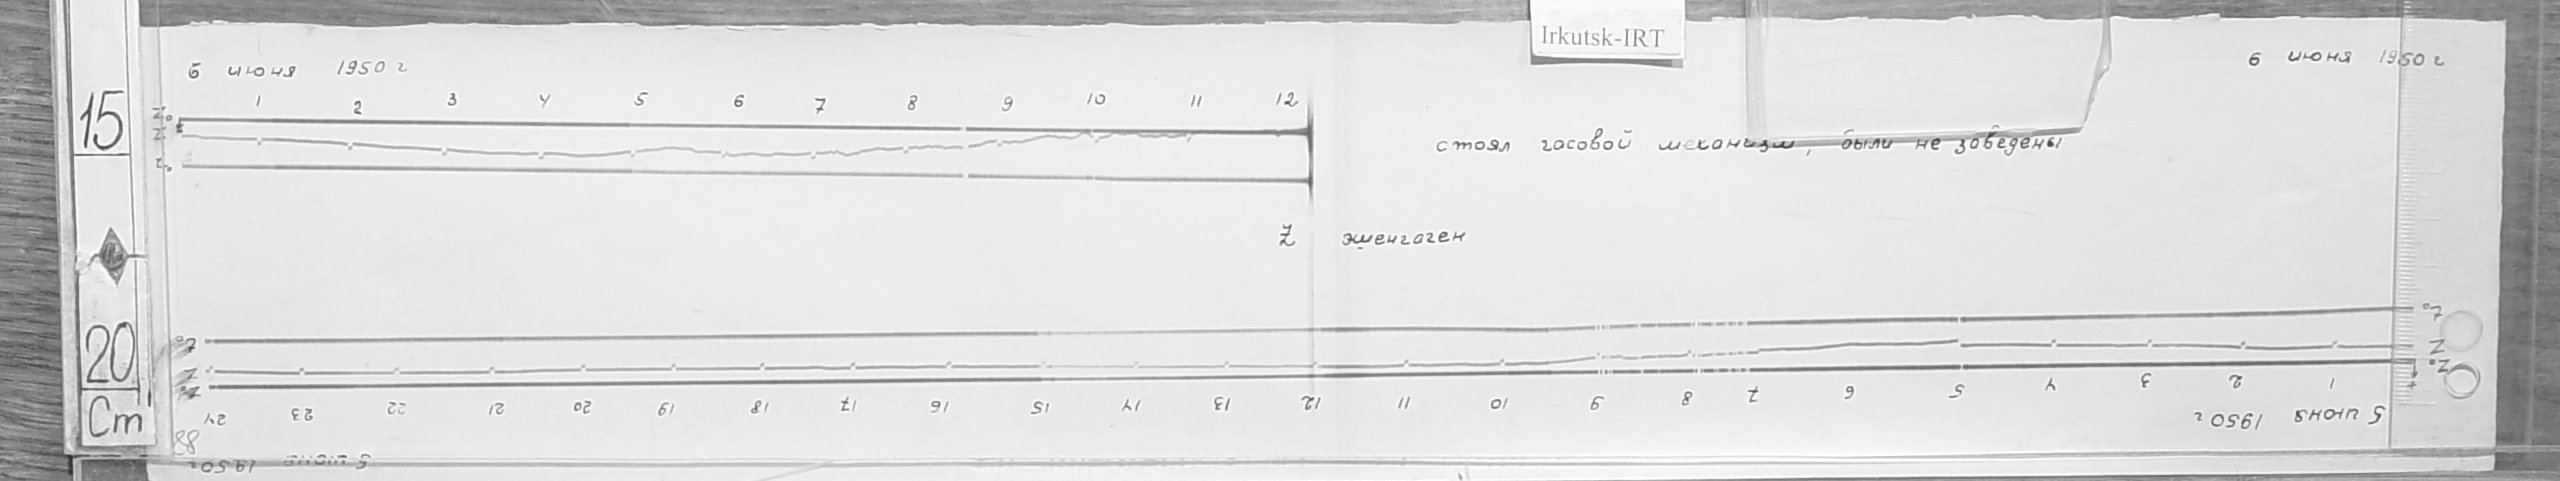 Irkutsk-IRT
6 июня 1950 г
6 июня 1950 г
15
1 2 3 4 5 6 7 8 9 10 11 12
Z₀
Z
t₀
стоял часовой механизм, были не заведены
Z эшенгаген
t₀
Z
Z₀
20
t₀
Z
Z₀
24 23 22 21 20 19 18 17 16 15 14 13 12 11 10 9 8 7 6 5 4 3 2 1
Cm
5 июня 1950 г
88
5 июня 1950 г